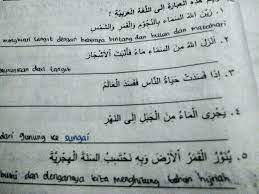 هذه العبارة إلى اللغة العربية !
زين الله السماء بالنجوم والقمر والشمس
menghiasi langit dengan beberapa bintang dan bulan dan matahari
٢. أنزل الله من السماء ماء فأنبت الأشجار
dari langit
٣. إذا فسدت حياة الناس ففسد العالم
٤. يجري الماء من الجبل إلى النهر
dari gunung ke sungai
٥. ينور القمر الأرض وبه نحتسب السنة الهجرية
bumi dan dengannya kita menghitung tahun hijriah